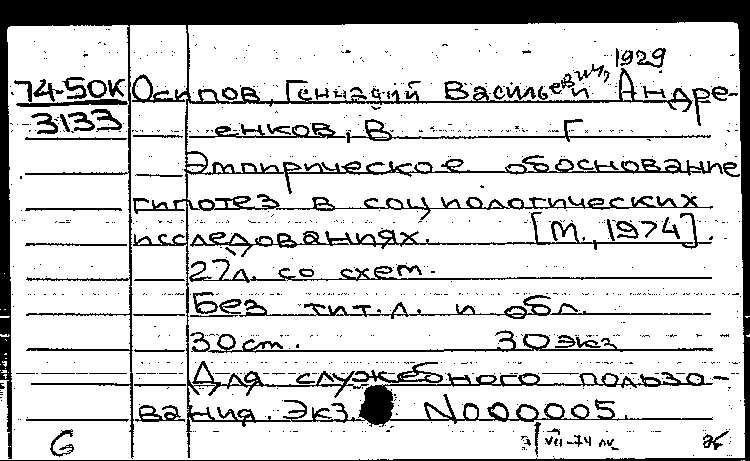 1929
74-50К Осипов, Геннадий Васильевич Андре-
3133 енков, В Г
Эмпирическое обоснование
гипотез в социологических
исследованиях. [М., 1974].
27л. со схем.
Без тит. л. и обл.
30 ст. 30 экз
Для служебного пользо-
вания. Экз. N000005.
6 VII-74